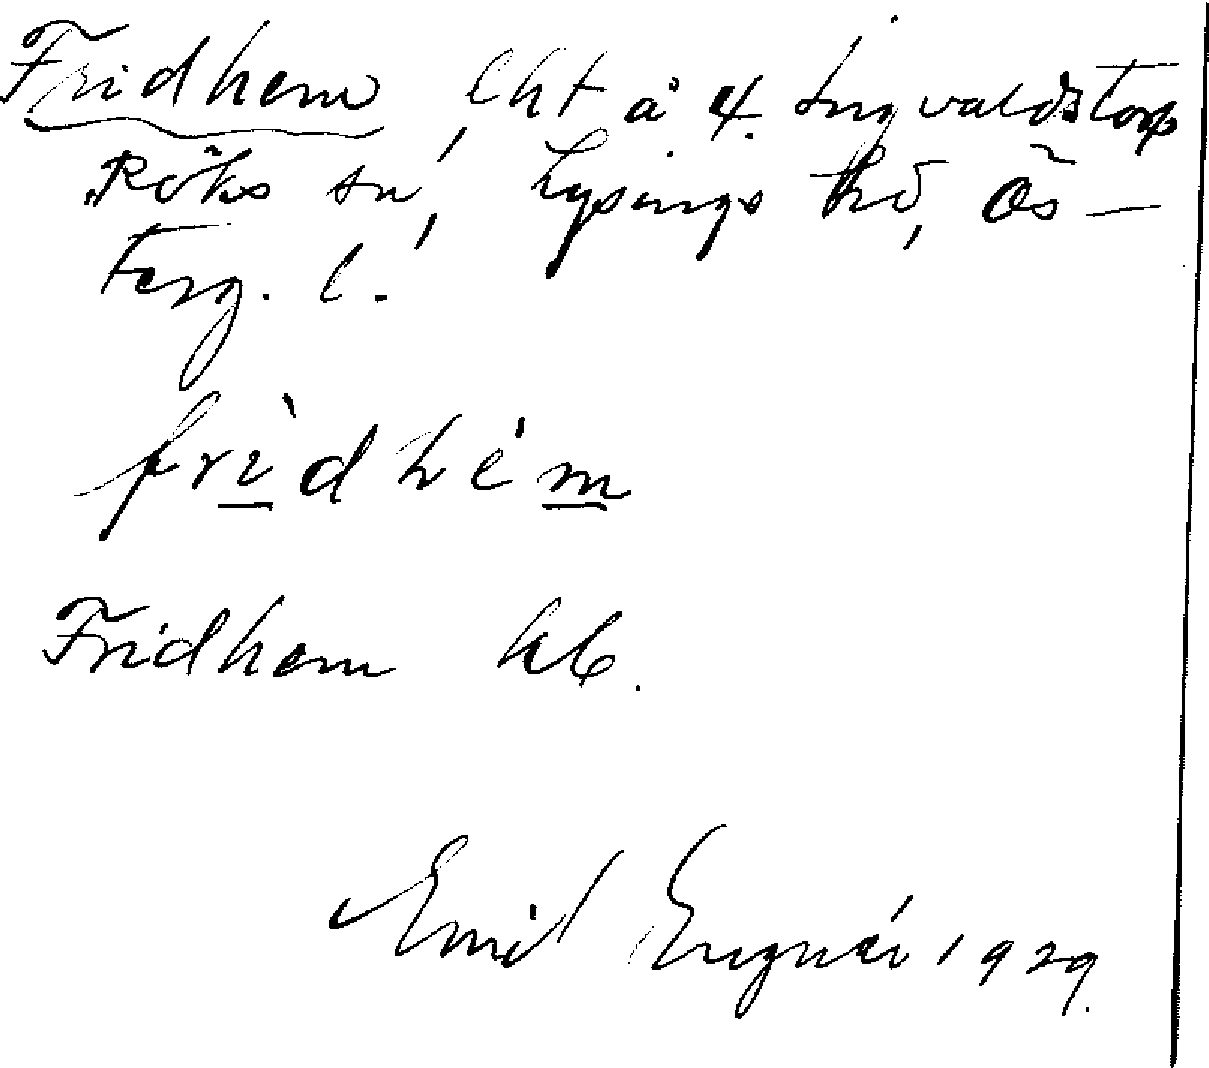 Fridhem, lht å 4. Ingvaldstorp
Röks sn, Lysings hd, Ös-
terg. l.
frìdhém
Fridhem kb.
Emil Engnér 1929.